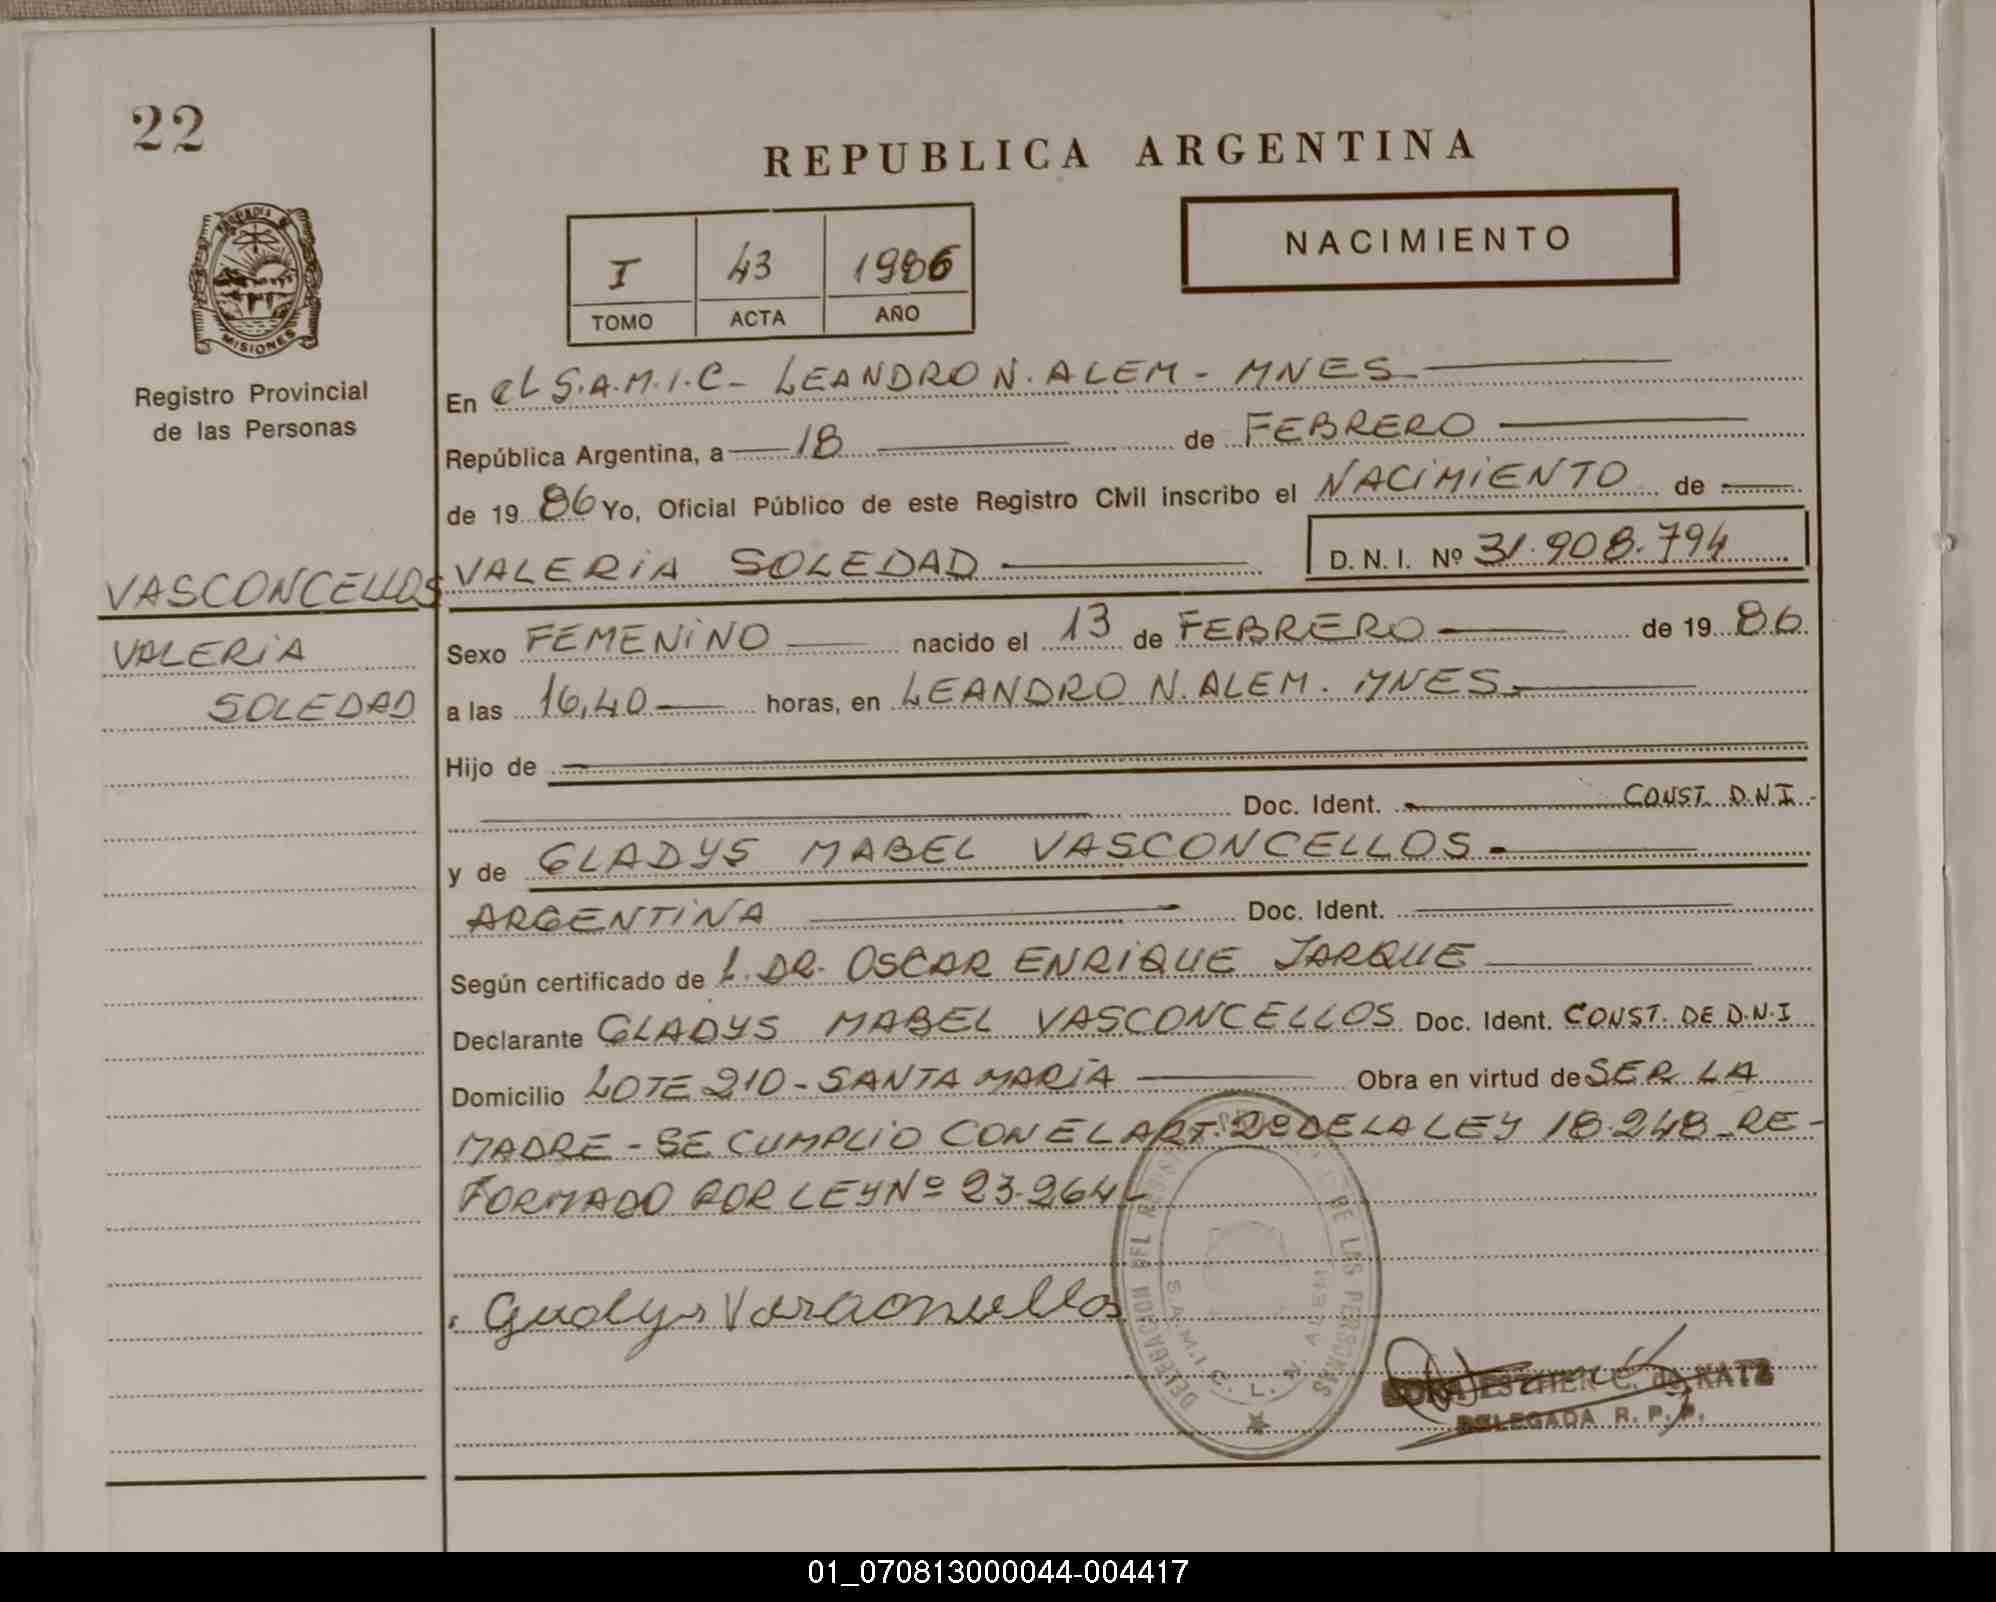 22
REPUBLICA ARGENTINA
NACIMIENTO
I 43 1986
TOMO ACTA AÑO
MISIONES
Registro Provincial
de las Personas
En el S.A.M.I.C - LEANDRO N. ALEM - MNES
República Argentina, a 18 de FEBRERO
de 19 86 Yo, Oficial Público de este Registro Civil inscribo el NACIMIENTO de
VASCONCELLOS VALERIA SOLEDAD D.N.I. Nº 31.908.794
VALERIA
SOLEDAD
Sexo FEMENINO nacido el 13 de FEBRERO de 19 86
a las 16,40 horas, en LEANDRO N. ALEM. MNES
Hijo de
Doc. Ident. CONST. D.N.I.
y de GLADYS MABEL VASCONCELLOS.-
ARGENTINA Doc. Ident.
Según certificado de L. DR. OSCAR ENRIQUE JARQUE
Declarante GLADYS MABEL VASCONCELLOS Doc. Ident. CONST. DE D.N.I
Domicilio LOTE 210 - SANTA MARIA Obra en virtud de SER LA
MADRE - SE CUMPLIO CON EL ART. 2º DE LA LEY 18.248 - RE-
FORMADO POR LEY Nº 23.264 -
Gladys Vasconcellos
DELEGACION DEL DE LAS PERSONAS
S.A.M.I.C. L. N. ALEM
ESTHER C. de KATZ
DELEGADA R. P. P.
01_070813000044-004417